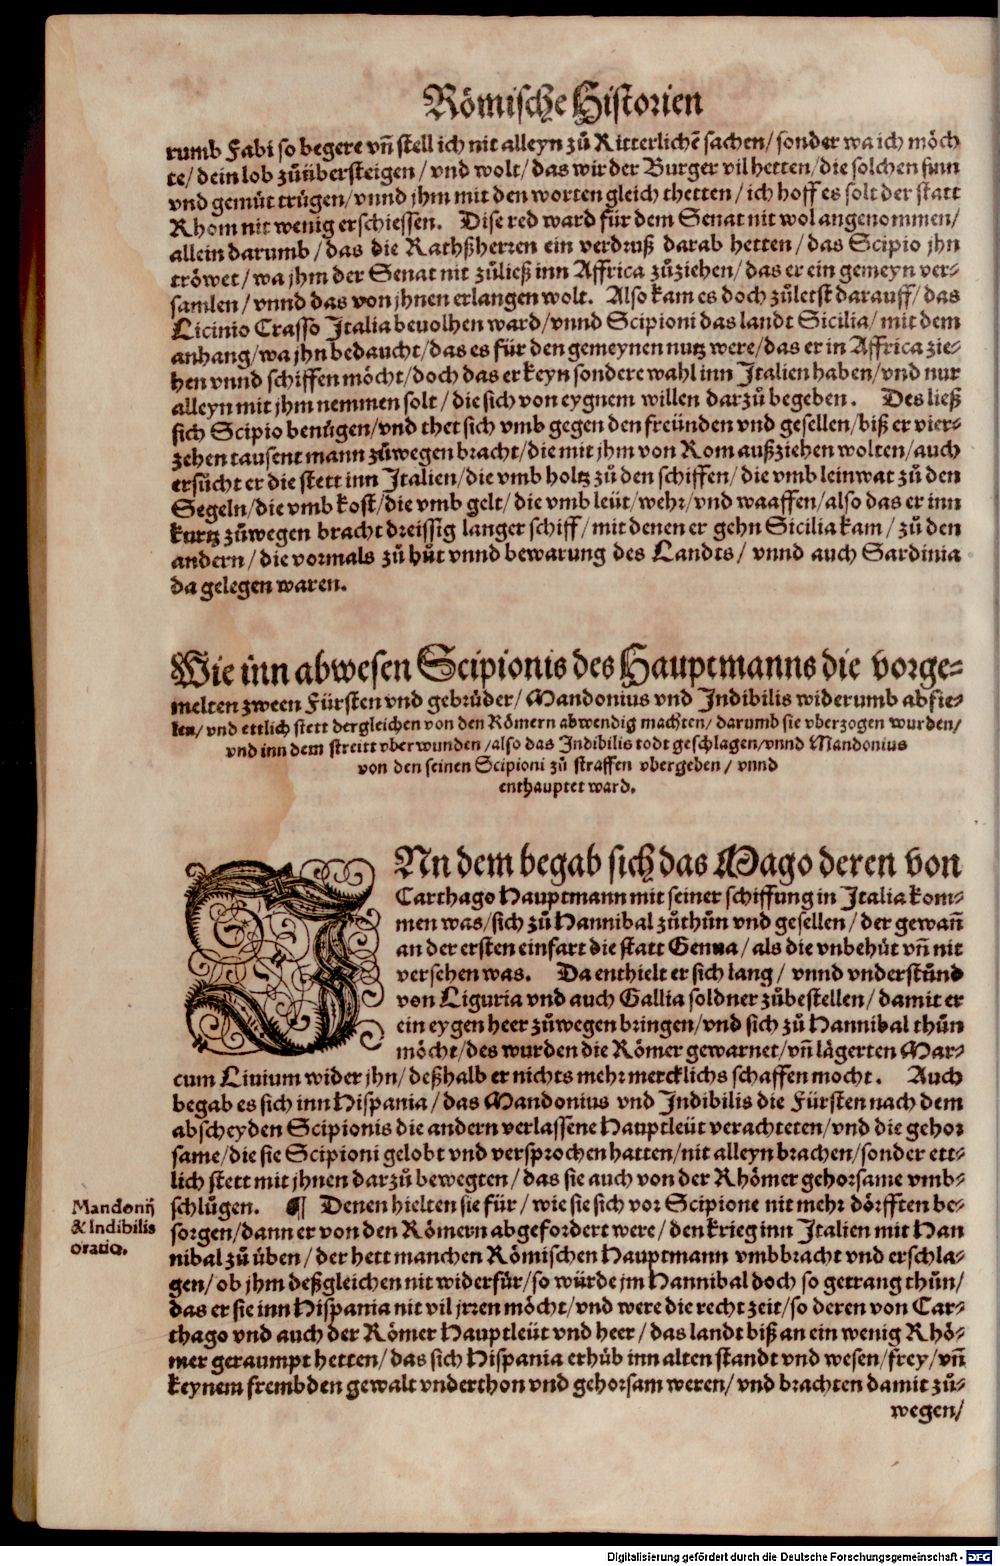 Römische Historien
rumb Fabi so begere vn̄ stell ich nit alleyn zů Ritterlichē sachen/ sonder wa ich möch
te/ dein lob zůübersteigen/ vnd wolt/ das wir der Burger vil hetten/ die solchen sinn
vnd gemüt trügen/ vnnd jhm mit den worten gleich thetten/ ich hoff es solt der statt
Rhom nit wenig erschiessen. Dise red ward für dem Senat nit wol angenommen/
allein darumb/ das die Rathßherren ein verdruß darab hetten/ das Scipio jhn
tröwet/ wa jhm der Senat nit zůließ inn Affrica zůziehen/ das er ein gemeyn ver-
samlen/ vnnd das von jhnen erlangen wolt. Also kam es doch zůletst darauff/ das
Licinio Crasso Italia beuolhen ward/ vnnd Scipioni das landt Sicilia/ mit dem
anhang/ wa jhn bedaucht/ das es für den gemeynen nutz were/ das er in Affrica zie-
hen vnnd schiffen möcht/ doch das er keyn sondere wahl inn Italien haben/ vnd nur
alleyn mit jhm nemmen solt/ die sich von eygnem willen darzů begeben. Des ließ
sich Scipio benügen/ vnd thet sich vmb gegen den freünden vnd gesellen/ biß er vier-
zehen tausent mann zůwegen bracht/ die mit jhm von Rom außziehen wolten/ auch
ersücht er die stett inn Italien/ die vmb holtz zů den schiffen/ die vmb leinwat zů den
Segeln/ die vmb kost/ die vmb gelt/ die vmb leüt/ wehr/ vnd waaffen/ also das er inn
kurtz zůwegen bracht dreissig langer schiff/ mit denen er gehn Sicilia kam/ zů den
andern/ die vormals zů hůt vnnd bewarung des Landts/ vnnd auch Sardinia
da gelegen waren.
Wie inn abwesen Scipionis des Hauptmanns die vorge-
melten zween Fürsten vnd gebrüder/ Mandonius vnd Indibilis widerumb abfie-
len/ vnd ettlich stett dergleichen von den Römern abwendig machten/ darumb sie vberzogen wurden/
vnd inn dem streitt vberwunden/ also das Indibilis todt geschlagen/ vnnd Mandonius
von den seinen Scipioni zů straffen vbergeben/ vnnd
enthauptet ward.
INn dem begab sich das Mago deren von
Carthago Hauptmann mit seiner schiffung in Italia kom-
men was/ sich zů Hannibal zůthůn vnd gesellen/ der gewan̄
an der ersten einfart die statt Genua/ als die vnbehůt vn̄ nit
versehen was. Da enthielt er sich lang/ vnnd vnderstůnd
von Liguria vnd auch Gallia soldner zůbestellen/ damit er
ein eygen heer zůwegen bringen/ vnd sich zů Hannibal thůn
möcht/ des wurden die Römer gewarnet/ vn̄ lägerten Mar-
cum Liuium wider jhn/ deßhalb er nichts mehr mercklichs schaffen mocht. Auch
begab es sich inn Hispania/ das Mandonius vnd Indibilis die Fürsten nach dem
abscheyden Scipionis die andern verlassene Hauptleüt verachteten/ vnd die gehor
same/ die sie Scipioni gelobt vnd versprochen hatten/ nit alleyn brachen/ sonder ett-
lich stett mit jhnen darzů bewegten/ das sie auch von der Rhömer gehorsame vmb-
schlügen. ¶ Denen hielten sie für/ wie sie sich vor Scipione nit mehr dörfften be-
sorgen/ dann er von den Römern abgefordert were/ den krieg inn Italien mit Han
nibal zů üben/ der hett manchen Römischen Hauptmann vmbbracht vnd erschla-
gen/ ob jhm deßgleichen nit widerfür/ so würde jm Hannibal doch so getrang thůn/
das er sie inn Hispania nit vil jrren möcht/ vnd were die recht zeit/ so deren von Car-
thago vnd auch der Römer Hauptleüt vnd heer/ das landt biß an ein wenig Rhö-
mer geraumpt hetten/ das sich Hispania erhůb inn alten standt vnd wesen/ frey/ vn̄
keynem frembden gewalt vnderthon vnd gehorsam weren/ vnd brachten damit zů-
wegen/
Mandonij
& Indibilis
oratio.
Digitalisierung gefördert durch die Deutsche Forschungsgemeinschaft - DFG